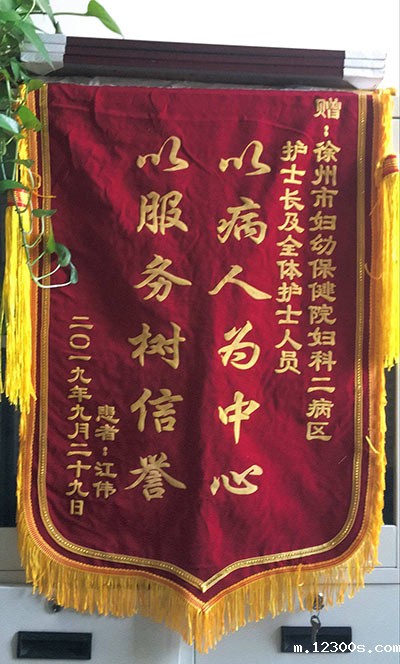 赠：徐州市妇幼保健院妇科二病区
护士长及全体护士人员
以病人为中心
以服务树信誉
患者：江伟
二〇一九年九月二十九日
m.12300s.com